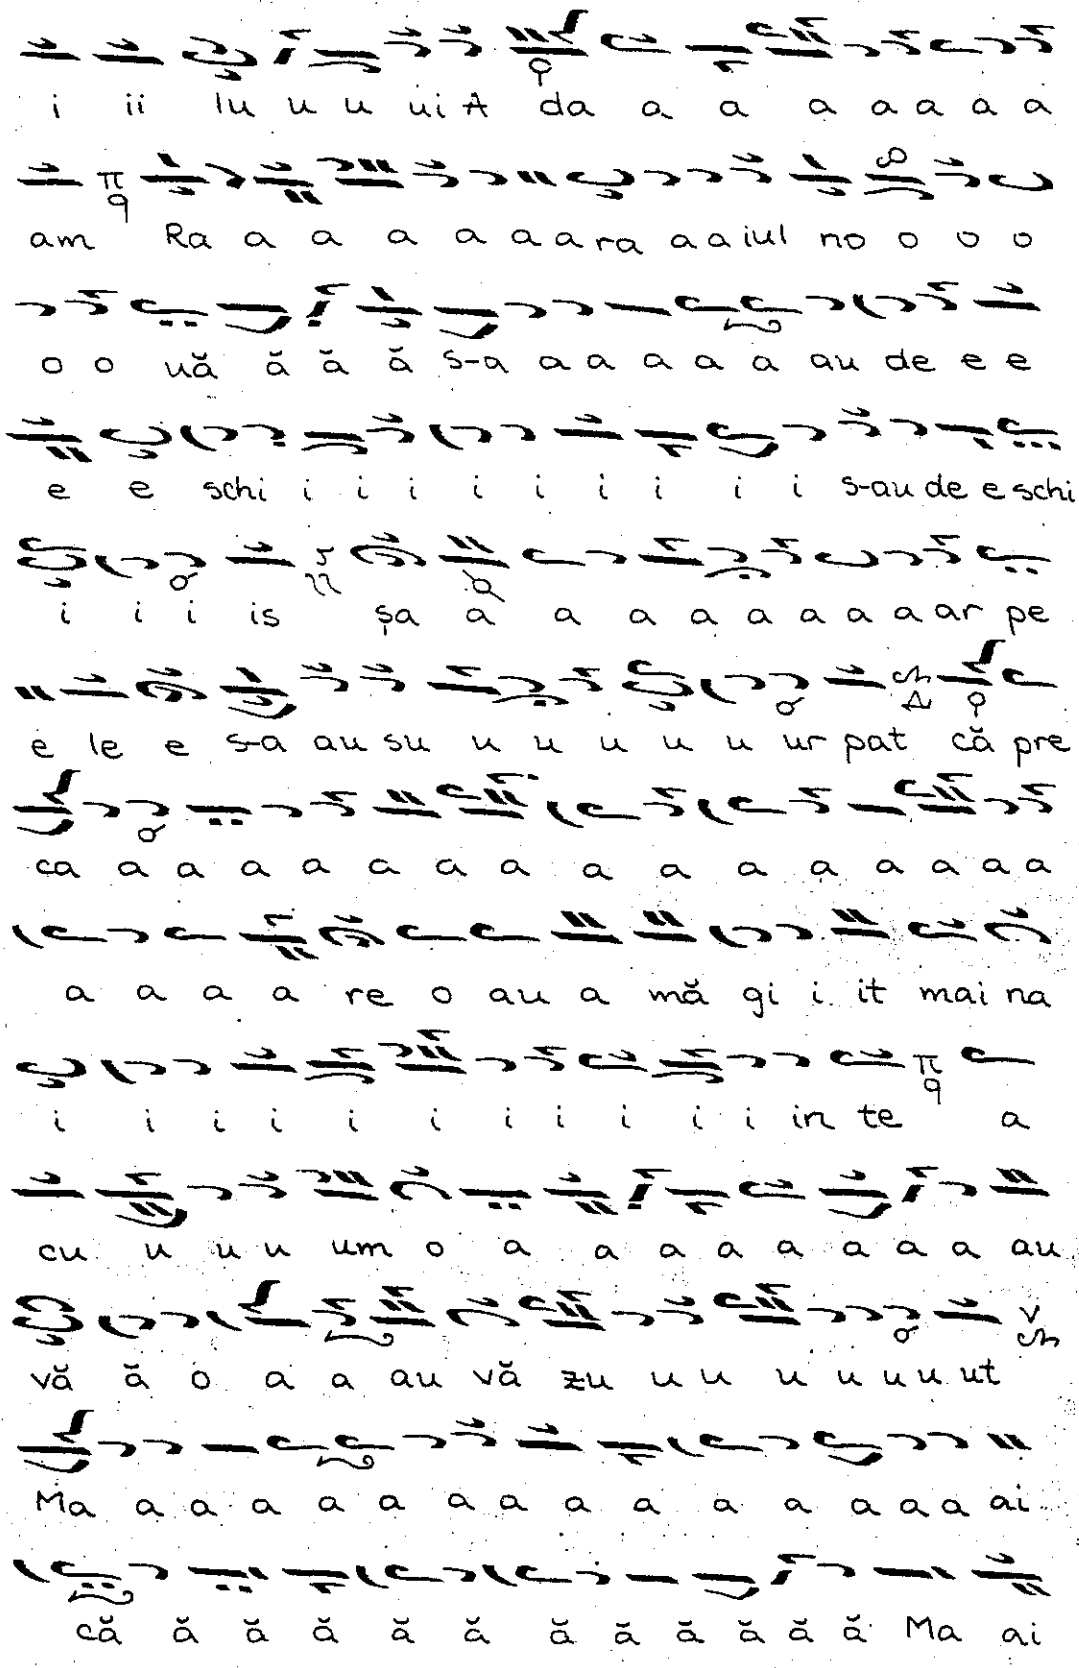 i ii lu u u ui A da a a a a a a a
am Ra a a a a a a ra a a iul no o o o
o o uă ă ă ă s-a a a a a a au de e e
e e schi i i i i i i i i i s-au de e schi
i i i is șa a a a a a a a ar pe
e le e s-a au su u u u u u ur pat că pre
ca a a a a a a a a a a a a a a a
a a a a re o au a mă gi i it mai na
i i i i i i i i i i i in te a
cu u u u um o a a a a a a a a au
vă ă o a a au vă zu u u u u u u ut
Ma a a a a a a a a a a a a a a ai
că ă ă ă ă ă ă ă ă ă ă ă Ma ai